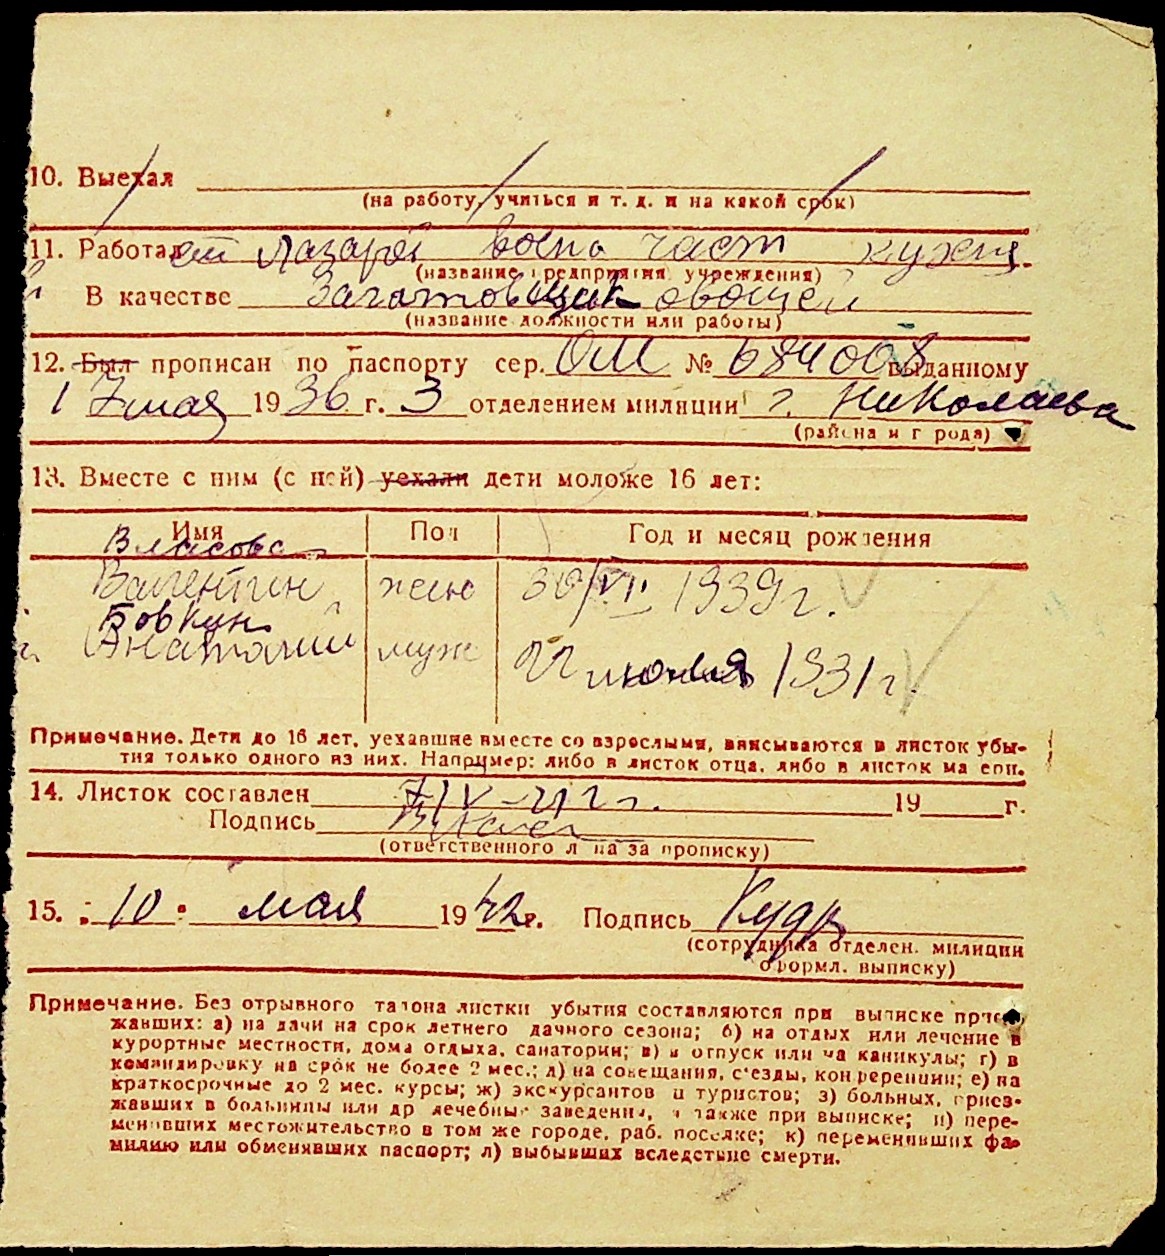 10. Выехал
(на работу, учиться и т. д. и на какой срок)
11. Работал ст лазарет воен част кухня
(название предприятия, учреждения)
В качестве Загатовщик овощей
(название должности или работы)
12. Был прописан по паспорту сер. ОМ № 684008 выданному
17 мая 1936 г. 3 отделением милиции г. Николаева
(района и города)
13. Вместе с ним (с ней) уехали дети моложе 16 лет:
Имя Пол Год и месяц рождения
Власова
Валентин женс 30/VI 1939 г.
Бовкун
Анатолий муж 22 июля 1931 г.
Примечание. Дети до 16 лет, уехавшие вместе со взрослыми, вписываются в листок убы-
тия только одного из них. Например: либо в листок отца, либо в листок матери.
14. Листок составлен 7/V-42 г. 19 г.
Подпись
(ответственного лица за прописку)
15. „10" мая 1942 г. Подпись Кудр
(сотрудника отделен. милиции
оформл. выписку)
Примечание. Без отрывного талона листки убытия составляются при выписке приез-
жавших: а) на дачи на срок летнего дачного сезона; б) на отдых или лечение в
курортные местности, дома отдыха, санатории; в) в отпуск или на каникулы; г) в
командировку на срок не более 2 мес.; д) на совещания, съезды, конференции; е) на
краткосрочные до 2 мес. курсы; ж) экскурсантов и туристов; з) больных, приез-
жавших в больницы или др лечебные заведения, а также при выписке; и) пере-
менивших местожительство в том же городе, раб. поселке; к) переменивших фа-
милию или обменявших паспорт; л) выбывших вследствие смерти.